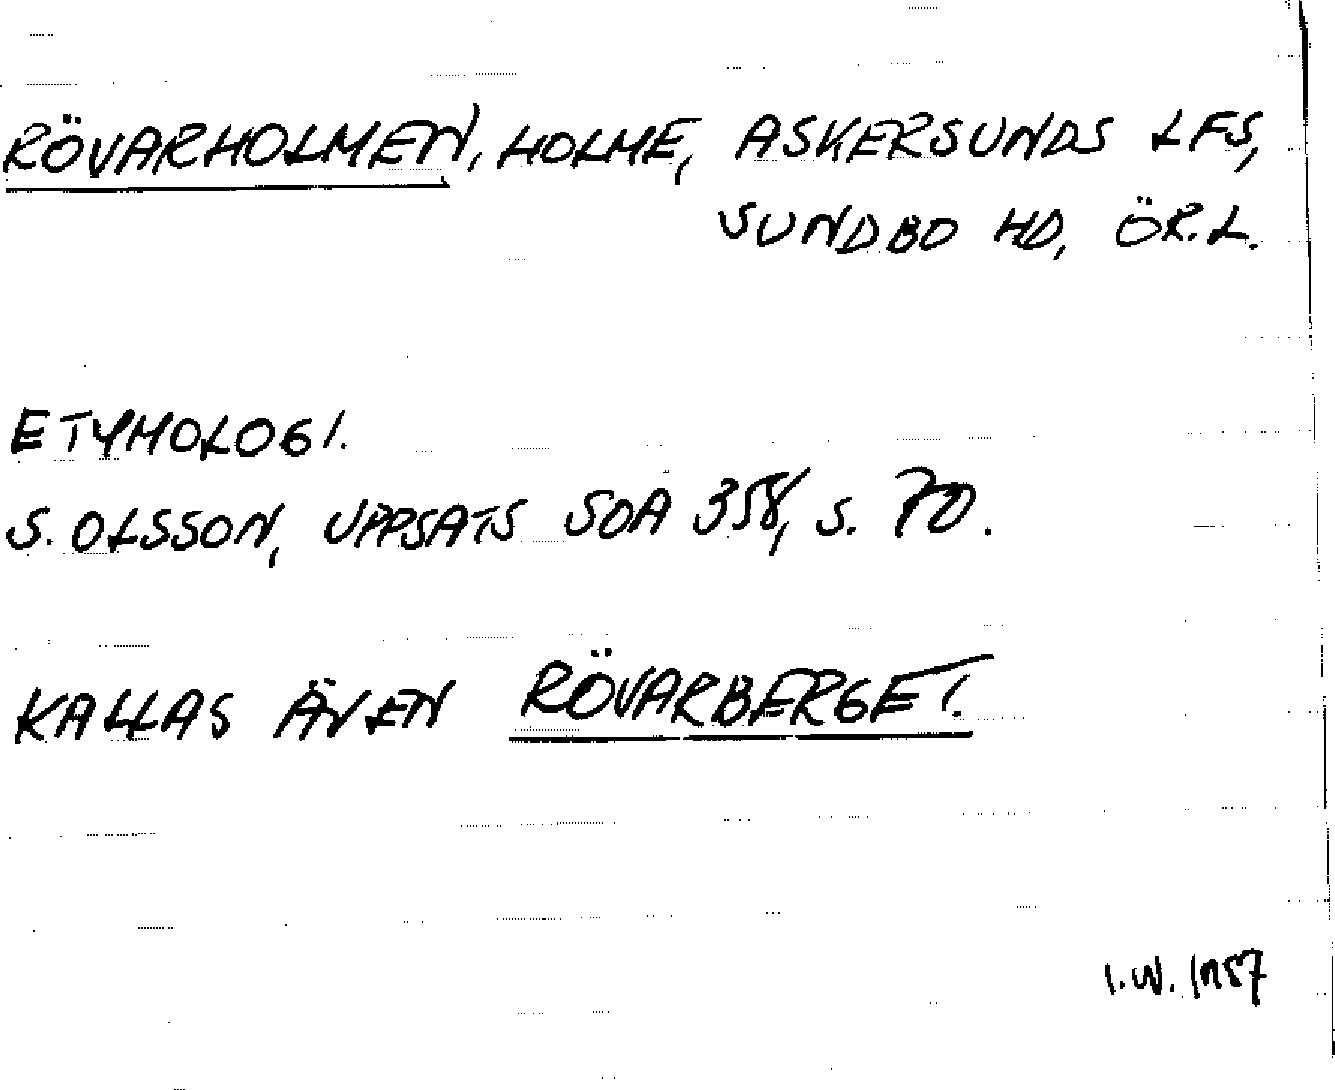 RÖVARHOLMEN, HOLME, ASKERSUNDS LFS,
SUNDBO HD, ÖR.L.
ETYMOLOGI.
S. OLSSON, UPPSATS SOA 358, S. 70.
KALLAS ÄVEN RÖVARBERGET.
I.W.